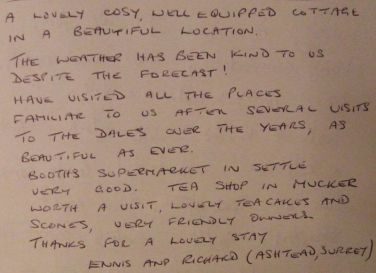 A LOVELY COSY, WELL EQUIPPED COTTAGE
IN A BEAUTIFUL LOCATION.
THE WEATHER HAS BEEN KIND TO US
DESPITE THE FORECAST!
HAVE VISITED ALL THE PLACES
FAMILIAR TO US AFTER SEVERAL VISITS
TO THE DALES OVER THE YEARS, AS
BEAUTIFUL AS EVER.
BOOTHS SUPERMARKET IN SETTLE
VERY GOOD. TEA SHOP IN MUCKER
WORTH A VISIT, LOVELY TEACAKES AND
SCONES, VERY FRIENDLY OWNERS.
THANKS FOR A LOVELY STAY
ENNIS AND RICHARD (ASHTEAD, SURREY)